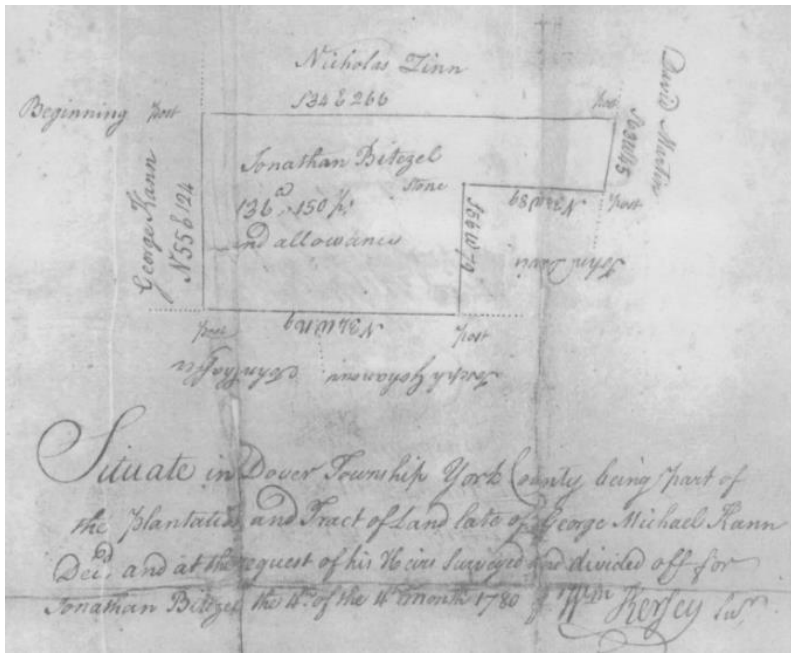 Nicholas Zinn
S34E266
Beginning post
post
David Martin
S63W45
George Kann
N55E124
Jonathan Bitezel
stone
136a. 150 p.
and allowance
N34W89
post
S56W79
John
N34W179
post
post
John
Joseph
Situate in Dover Township York County being part of
the Plantation and Tract of Land late of George Michael Kann
Decd. and at the request of his Heirs Surveyed and divided off for
Jonathan Bitezel the 4th. of the 4th. month 1780 Wm Kersey Sur.